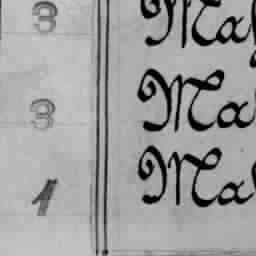 3 May
3 Ma
1 Ma